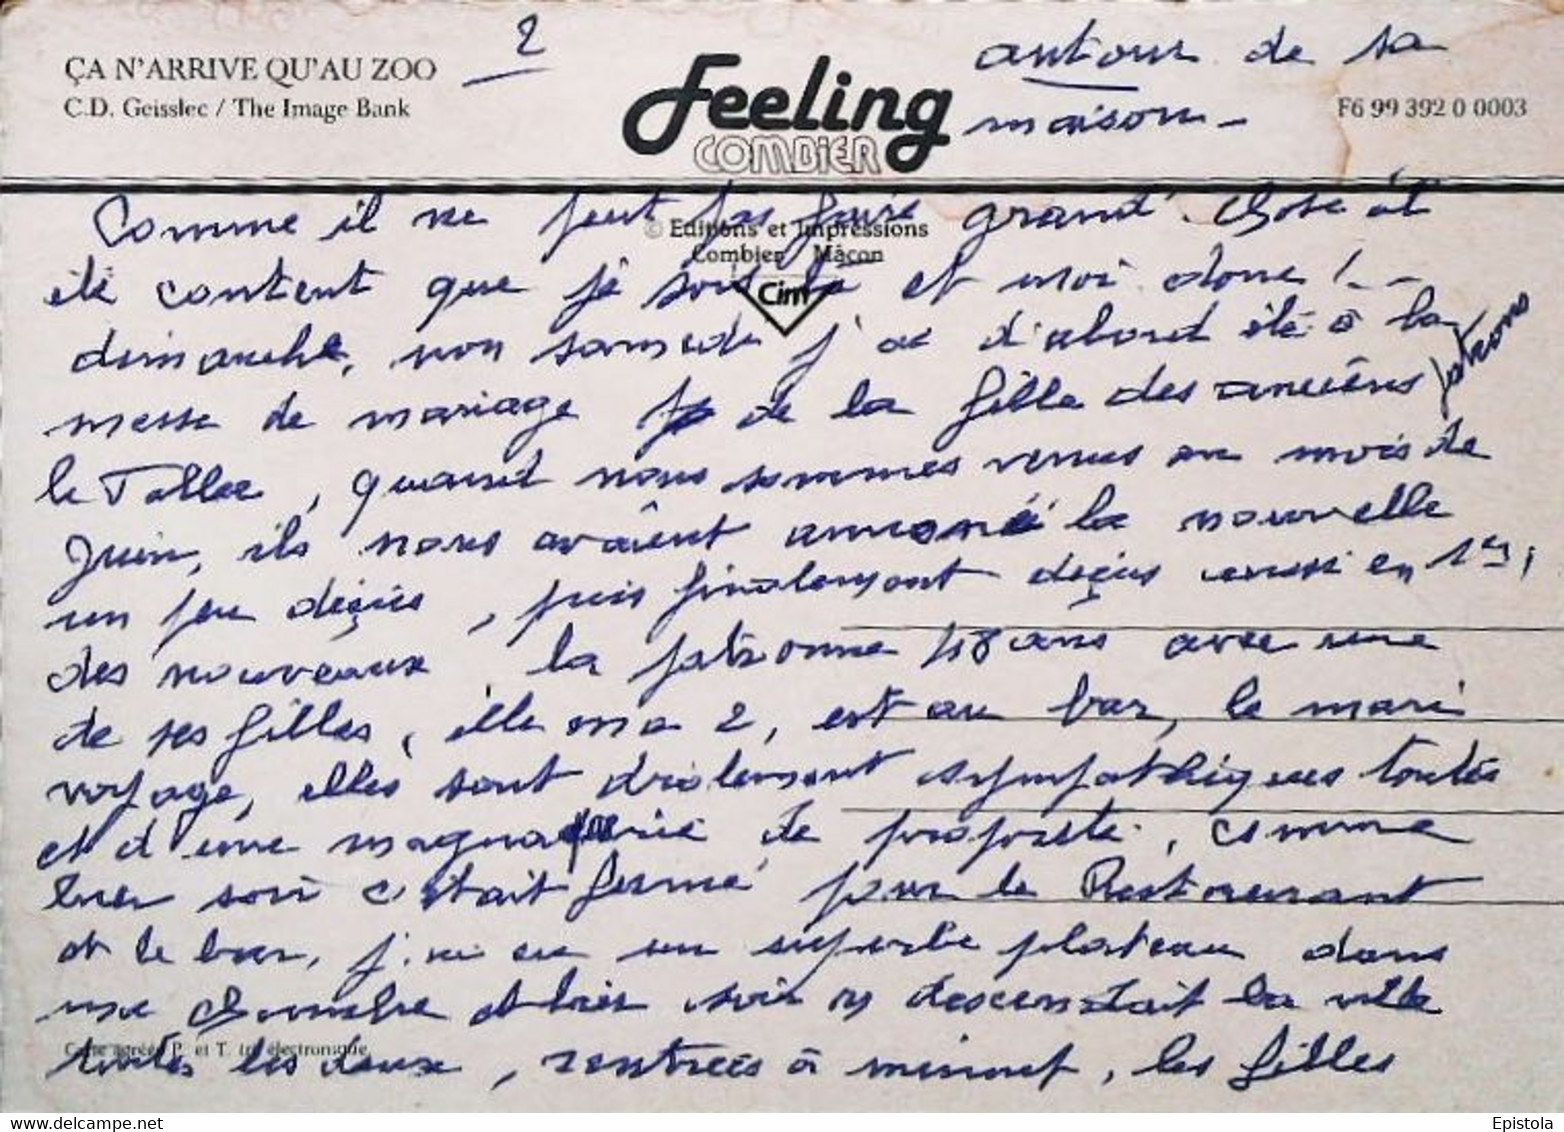 ÇA N'ARRIVE QU'AU ZOO
C.D. Geisslec / The Image Bank
2
Feeling
COMBIER
F6 99 392 0 0003
autour de sa
maison -
© Editions et Impressions
Combier Mâcon
Cim
Comme il ne peut pas faire grand' chose a
été content que je sois là et moi donc !..
dimanche, non samedi j'ai d'abord été à la
messe de mariage de la fille des anciens patrons
le Taller, quand nous sommes venus au mois de
Juin, ils nous avaient annoncé la nouvelle
un peu déçus, puis finalement déçus aussi en 1er,
des nouveaux la patronne 48 ans avec une
de ses filles, elle en a 2, est au bar, le mari
voyage, elles sont drôlement sympathiques toutes
et d'une de propreté, comme
hier soir c'était fermé pour le Restaurant
et le bar, j'ai eu un superbe plateau dans
ma chambre et hier soir on descendait la ville
toutes les deux, rentrées à minuit, les filles
Carte agréée P. et T. tri électronique
Epistola
www.delcampe.net